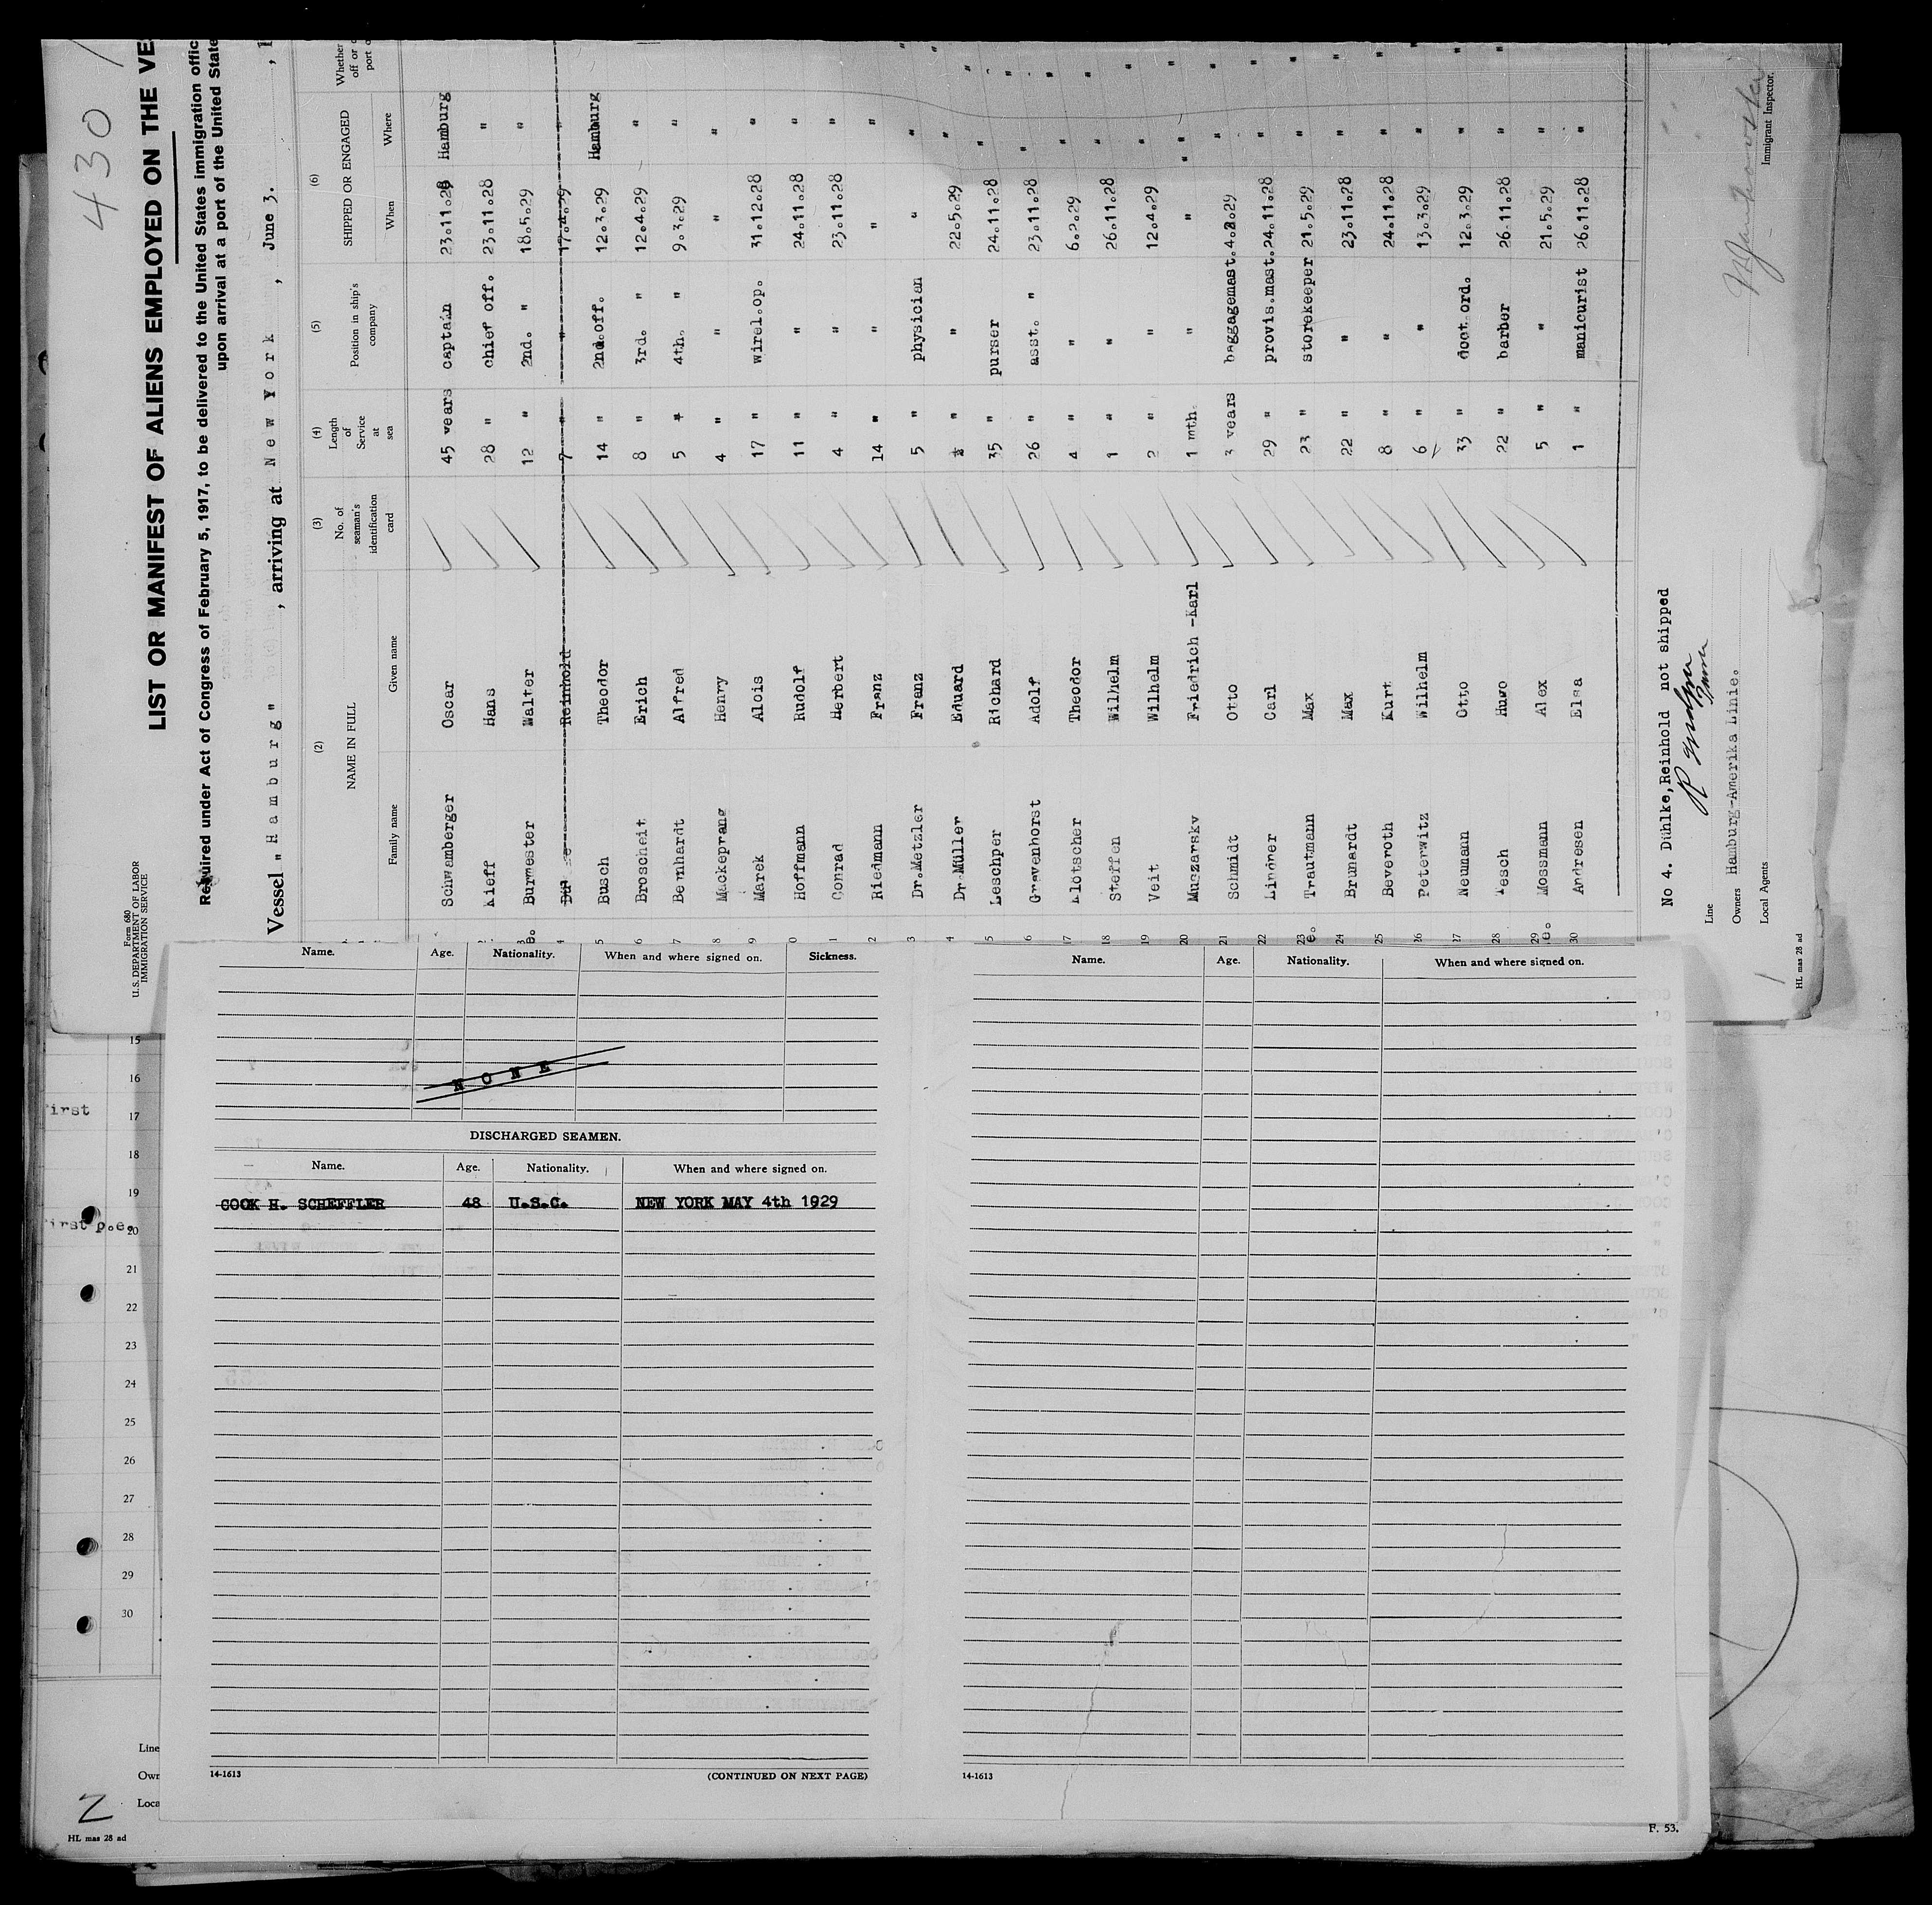 430
Form 680
U. S. DEPARTMENT OF LABOR
IMMIGRATION SERVICE
LIST OR MANIFEST OF ALIENS EMPLOYED ON THE VE
Required under Act of Congress of February 5, 1917, to be delivered to the United States immigration offic
upon arrival at a port of the United State
Vessel "Hamburg" , arriving at New York , June 3. , 1
(2) (3) (4) (5) (6)
NAME IN FULL No. of seaman's identification card Length of Service at sea Position in ship's company SHIPPED OR ENGAGED Whether
Family name Given name When Where
Schwamberger Oscar 45 years captain 23.11.28 Hamburg
2 Kieff Hans 28 " chief off. 23.11.28 "
3 Burmester Walter 12 " 2nd. " 18.5.29 "
4 Reinhold 7 " " 17.4.29 "
5 Busch Theodor 14 " 2nd.off. 12.3.29 Hamburg
6 Broscheit Erich 8 " 3rd. " 12.4.29 "
7 Bernhardt Alfred 5 " 4th. " 9.3.29 "
8 Mackeprang Henry 4 " " " "
9 Marek Alois 17 " wirel.op. 31.12.28 "
0 Hoffmann Rudolf 11 " " 24.11.28 "
1 Conrad Herbert 4 " " 23.11.28 "
2 Riedmann Franz 14 " " " "
3 Dr.Metzler Franz 5 " physician " "
4 Dr.Müller Eduard " " 22.5.29 "
5 Leschper Richard 35 " purser 24.11.28 "
6 Gravenhorst Adolf 26 " asst. " 23.11.28 "
17 Klötscher Theodor 4 " " 6.2.29 "
18 Steffen Wilhelm 1 " " 26.11.28 "
19 Veit Wilhelm 2 " " 12.4.29 "
20 Muszarsky Friedrich -Karl 1 mth. " " "
21 Schmidt Otto 3 years baggagemast. 4.2.29 "
22 Lindner Carl 29 " provis.mast. 24.11.28 "
23 Trautmann Max 23 " storekeeper 21.5.29 "
24 Brumardt Max 22 " " 23.11.28 "
25 Beveroth Kurt 8 " " 24.11.28 "
26 Peterwitz Wilhelm 6 " " 13.3.29 "
27 Neumann Otto 33 " doct.ord. 12.3.29 "
28 Tesch Hugo 22 " barber 26.11.28 "
29 Mossmann Alex 5 " " 21.5.29 "
30 Andresen Elsa 1 " manicurist 26.11.28 "
No 4. Dühlke,Reinhold not shipped
Line
Owners Hamburg-Amerika Linie.
Local Agents
Immigrant Inspector.
HL mas 28 ad
1
Name. Age. Nationality. When and where signed on. Sickness.
NONE
DISCHARGED SEAMEN.
Name. Age. Nationality. When and where signed on.
COOK H. SCHEFFLER 48 U.S.C. NEW YORK MAY 4th 1929
14-1613 (CONTINUED ON NEXT PAGE)
Name. Age. Nationality. When and where signed on.
14-1613
F. 53.
15
16
irst
17
18
19
irst p.e.
20
21
22
23
24
25
26
27
28
29
30
Line
Own
Loca
2
HL mas 28 ad